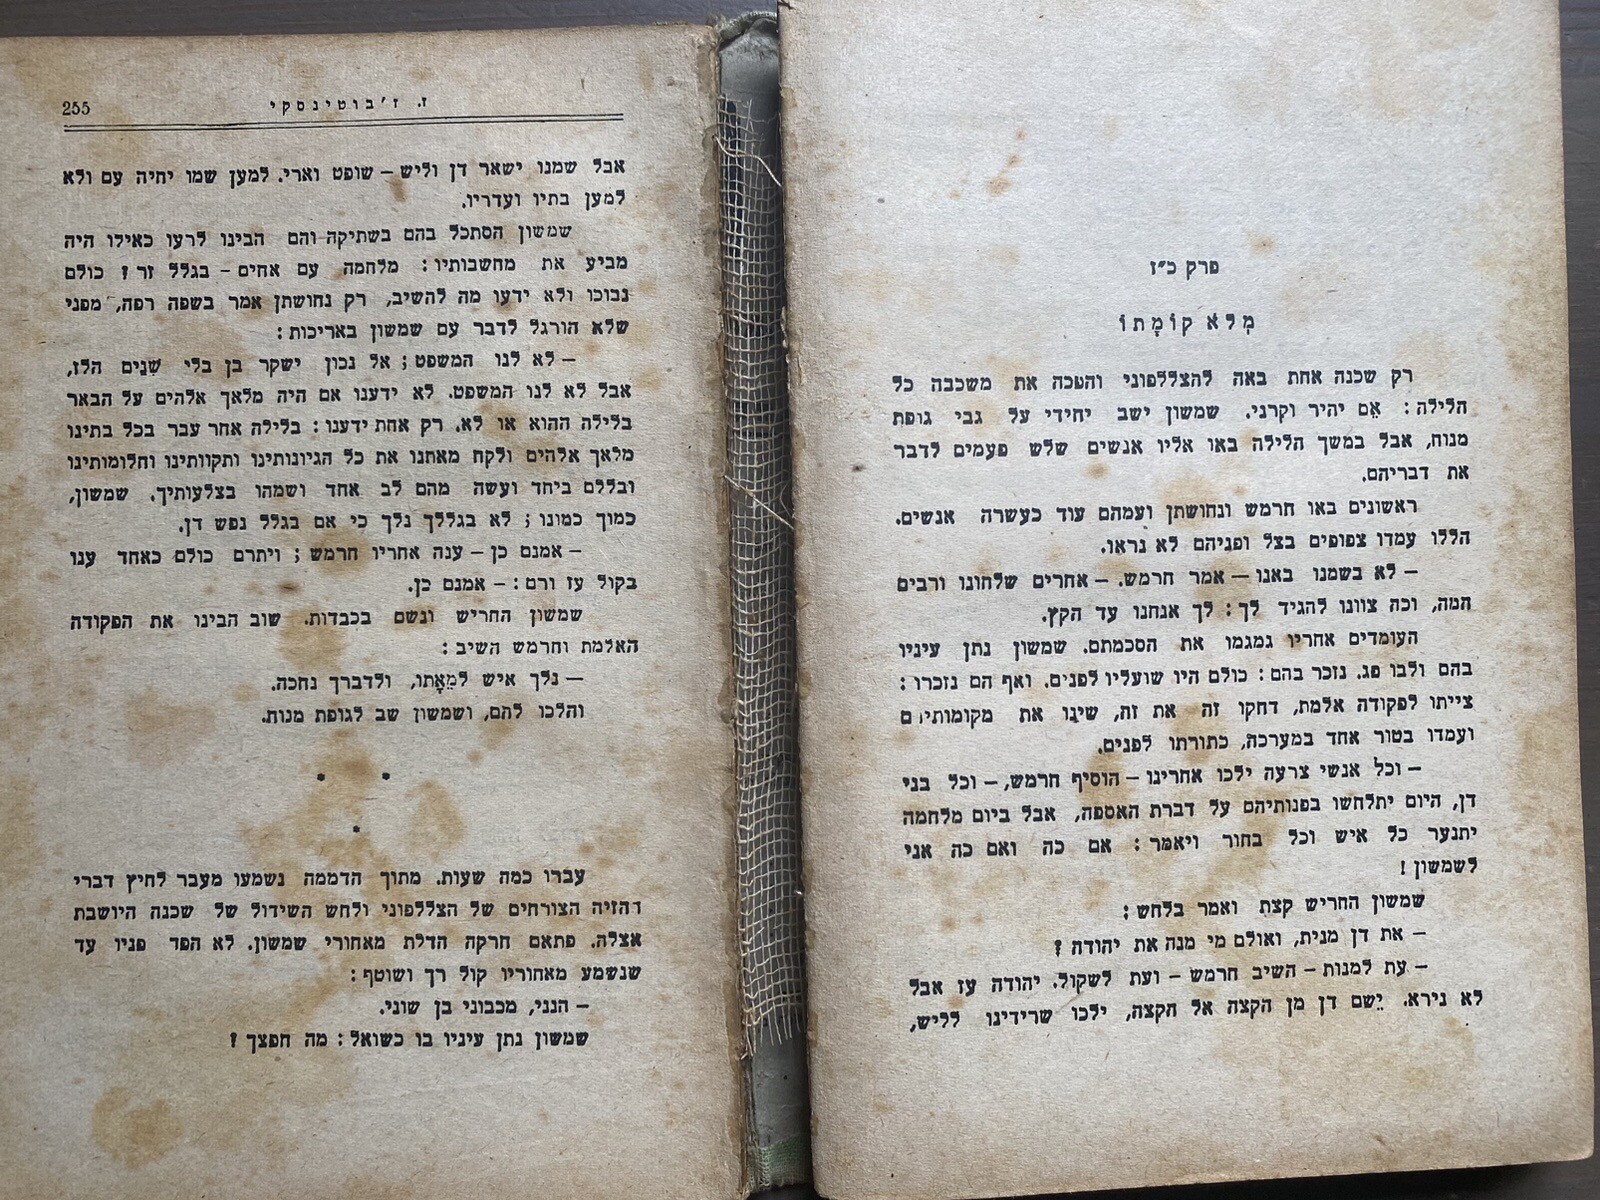 פרק כ״ז
מְלֹא קוֹמָתוֹ
רק שכנה אחת באה להצללפוני והטכה את משכבה כל
הלילה: אֵם יהיר וקרני. שמשון ישב יחידי על גבי גופת
מנוח, אבל במשך הלילה באו אליו אנשים שלש פעמים לדבר
את דבריהם.
ראשונים באו חרמש ונחושתן ועמהם עוד כעשרה אנשים.
הללו עמדו צפופים בצל ופניהם לא נראו.
– לא בשמנו באנו – אמר חרמש. – אחרים שלחונו ורבים
המה, וכה צוונו להגיד לך: לך אנחנו עד הקץ.
העומדים אחריו גמגמו את הסכמתם. שמשון נתן עיניו
בהם ולבו פג. נזכר בהם: כולם היו שועליו לפנים. ואף הם נזכרו:
צייתו לפקודה אלמת, דחקו זה את זה, שינו את מקומותיהם
ועמדו בטור אחד במערכה, כתורתו לפנים.
– וכל אנשי צרעה ילכו אחרינו – הוסיף חרמש, – וכל בני
דן, היום יתלחשו בפנותיהם על דברת האספה, אבל ביום מלחמה
יתנער כל איש וכל בחור ויאמר: אם כה ואם כה אני
לשמשון!
שמשון החריש קצת ואמר בלחש:
– את דן מנית, ואולם מי מנה את יהודה?
– עת למנות – השיב חרמש – ועת לשקול. יהודה עז אבל
לא נירא. יֵשם דן מן הקצה אל הקצה, ילכו שרידינו לליש,
ז. ז׳בוטינסקי 255
אבל שמנו ישאר דן וליש – שופט וארי. למען שמו יחיה עם ולא
למען בתיו ועדריו.
שמשון הסתכל בהם בשתיקה והם הבינו לרעו כאילו היה
מביע את מחשבותיו: מלחמה עם אחים – בגלל זר? כולם
נבוכו ולא ידעו מה להשיב, רק נחושתן אמר בשפה רפה, מפני
שלא הורגל לדבר עם שמשון באריכות:
– לא לנו המשפט; אל נכון ישקר בן בלי שִנַים הלז,
אבל לא לנו המשפט. לא ידענו אם היה מלאך אלהים על הבאר
בלילה ההוא או לא. רק אחת ידענו: בלילה אחר עבר בכל בתינו
מלאך אלהים ולקח מאתנו את כל הגיונותינו ותקוותינו וחלומותינו
ובללם ביחד ועשה מהם לב אחד ושמהו בצלעותיך. שמשון,
כמוך כמונו; לא בגללך נלך כי אם בגלל נפש דן.
– אמנם כן – ענה אחריו חרמש; ויתרם כולם כאחד ענו
בקול עז ורם: – אמנם כן.
שמשון החריש ונשם בכבדות. שוב הבינו את הפקודה
האלמת וחרמש השיב:
– נלך איש לְמֵאָתו, ולדברך נחכה.
והלכו להם, ושמשון שב לגופת מנוח.
* *
*
עברו כמה שעות. מתוך הדממה נשמעו מעבר לחיץ דברי
ההזיה הצורחים של הצללפוני ולחש השידול של שכנה היושבת
אצלה. פתאם חרקה הדלת מאחורי שמשון. לא הפד פניו עד
שנשמע מאחוריו קול רך ושוטף:
– הנני, מכבוני בן שוני.
שמשון נתן עיניו בו כשואל: מה חפצך?